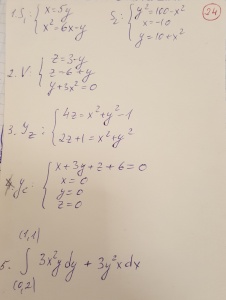 1. S₁: { x=5y
x²=6x-y
S₂: { y²=100-x²
x=-10
y=10+x²
24
2. V: { z=3-y
z=6+y
y+3x²=0
3. y_z: { 4z=x²+y²-1
2z+1=x²+y²
4. y_c: { x+3y+z+6=0
x=0
y=0
z=0
(1,1)
5. ∫ 3x²y dy + 3y²x dx
(0,2)